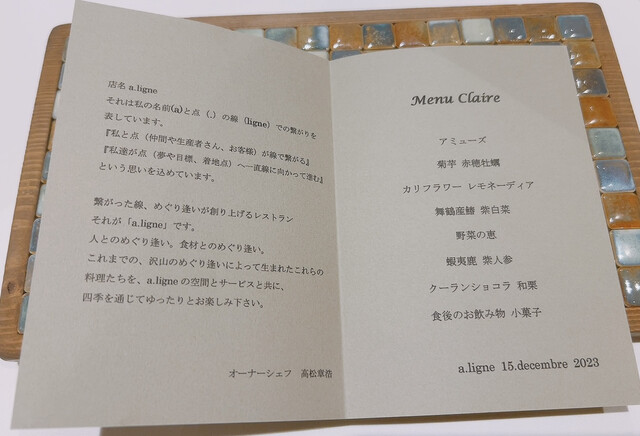 店名 a.ligne
それは私の名前(a)と点（.）の線（ligne）での繋がりを
表しています。
『私と点（仲間や生産者さん、お客様）が線で繋がる』
『私達が点（夢や目標、着地点）へ一直線に向かって進む』
という思いを込めています。
繋がった線、めぐり逢いが創り上げるレストラン
それが「a.ligne」です。
人とのめぐり逢い。食材とのめぐり逢い。
これまでの、沢山のめぐり逢いによって生まれたこれらの
料理たちを、a.ligneの空間とサービスと共に、
四季を通じてゆったりとお楽しみ下さい。
オーナーシェフ 高松章浩
Menu Claire
アミューズ
菊芋 赤穂牡蠣
カリフラワー レモネーディア
舞鶴産鰆 紫白菜
野菜の恵
蝦夷鹿 紫人参
クーランショコラ 和栗
食後のお飲み物 小菓子
a.ligne 15.decembre 2023